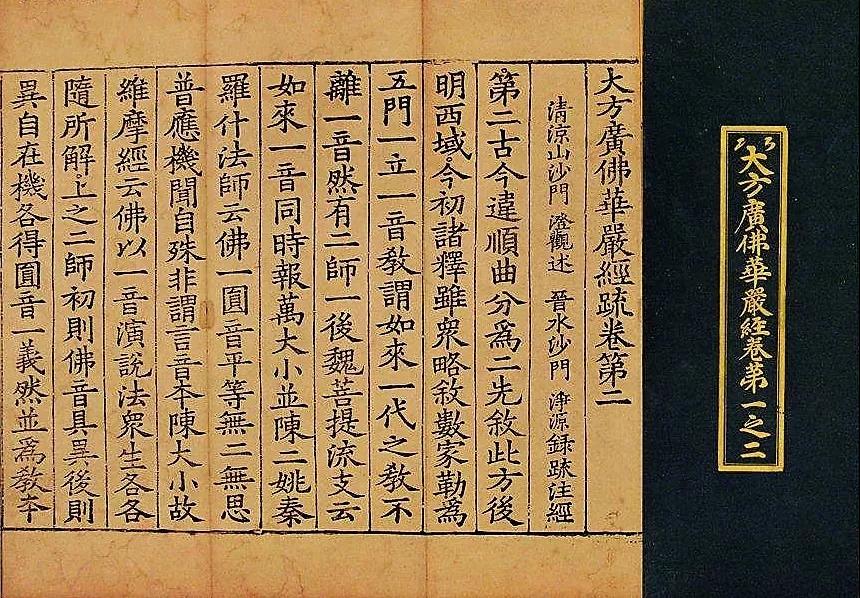 大方廣佛華嚴經卷第一之二
大方廣佛華嚴經䟽卷第二
清涼山沙門 澄觀述 晉水沙門 淨源録䟽注經
第二古今違順曲分爲二先敘此方後
明西域今初諸釋雖衆略敘數家勒爲
五門一立一音教謂如來一代之教不
離一音然有二師一後魏菩提流支云
如來一音同時報萬大小並陳二姚秦
羅什法師云佛一圓音平等無二無思
普應機聞自殊非謂言音本陳大小故
維摩經云佛以一音演說法衆生各各
隨所解上之二師初則佛音具異後則
異自在機各得圓音一義然並爲教本